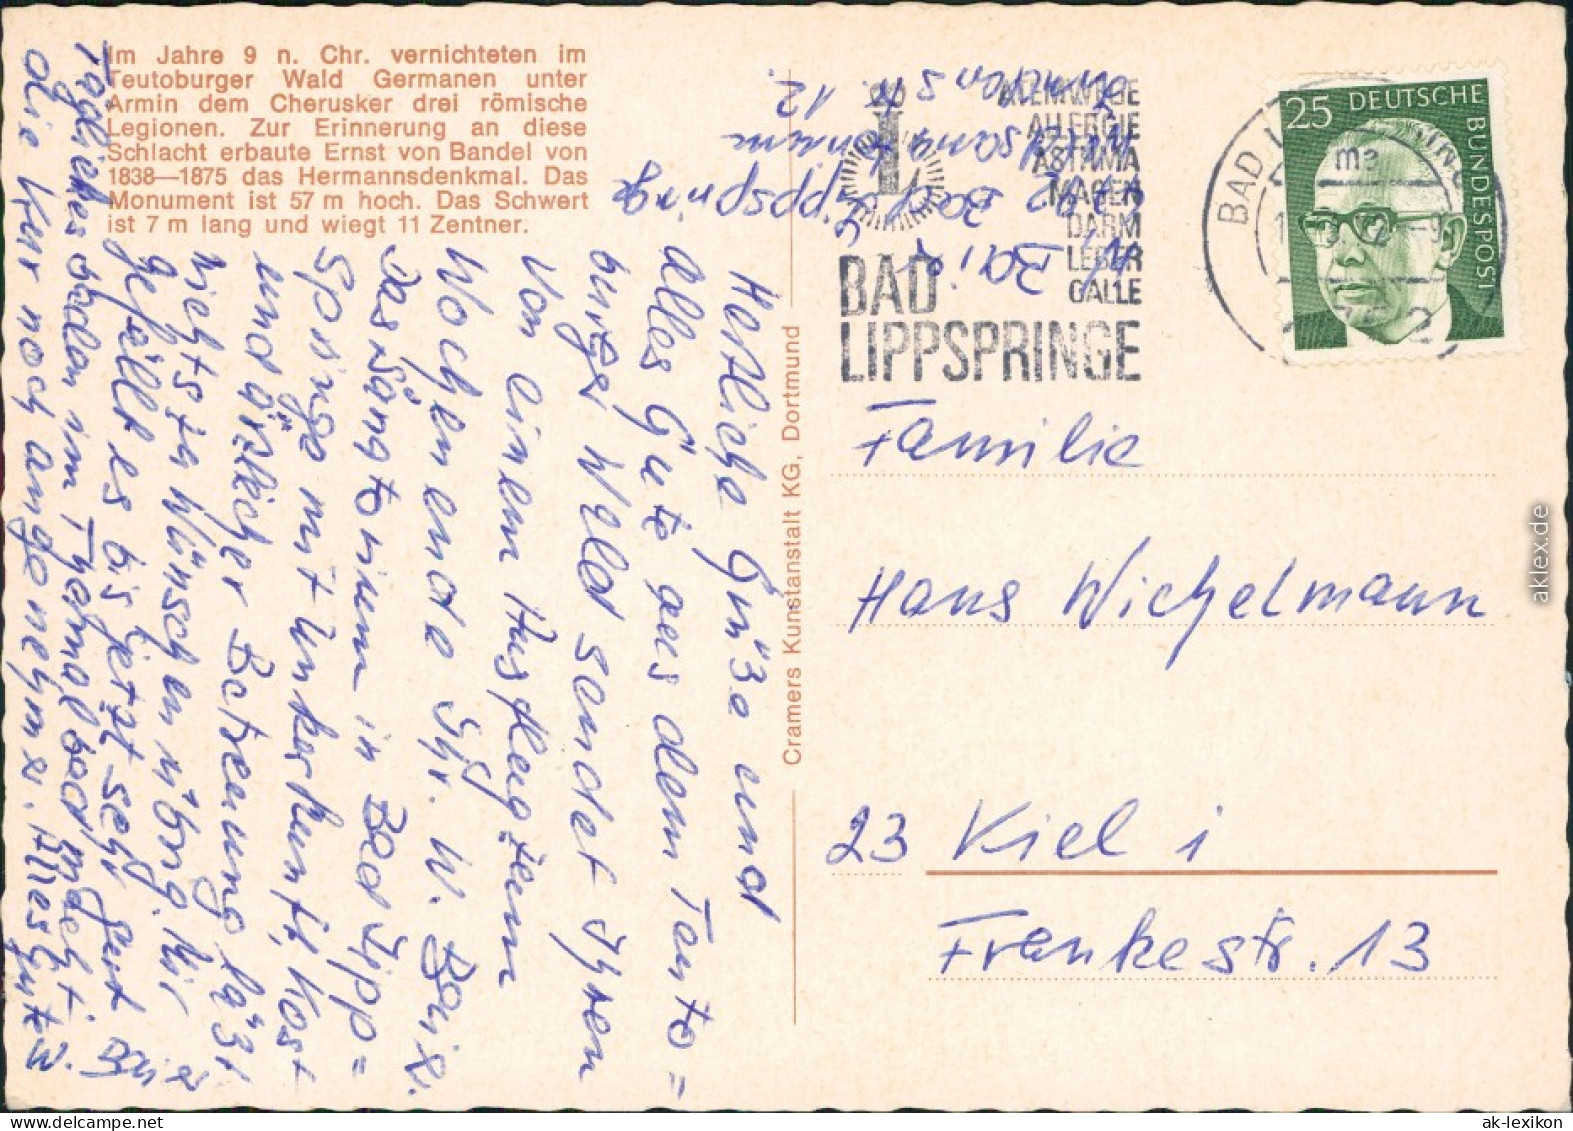 Im Jahre 9 n. Chr. vernichteten im
Teutoburger Wald Germanen unter
Armin dem Cherusker drei römische
Legionen. Zur Erinnerung an diese
Schlacht erbaute Ernst von Bandel von
1838—1875 das Hermannsdenkmal. Das
Monument ist 57 m hoch. Das Schwert
ist 7 m lang und wiegt 11 Zentner.
Herzliche Grüße und
alles Gute aus dem Teuto=
burger Wald sendet Ihnen
von einem Ausflug zum
Wochenende Ihr. W. Baier.
Das Sanatorium in Bad Lipp=
springe mit Unterkunft, Kost
und ärztlicher Betreuung läßt
nichts zu wünschen übrig. Mir
gefällt es bis jetzt sehr gut
Tägliches baden im Thermalbad macht
die Kur noch angenehmer. Alles Gute W. Baier
W. Baier
4792 Bad Lippspringe
12.
Cramers Kunstanstalt KG, Dortmund
ATEMWEGE
ALLERGIE
ASTHMA
MAGEN
DARM
LEBER
GALLE
BAD
LIPPSPRINGE
25 DEUTSCHE
BUNDESPOST
BAD
Familie
Hans Wichelmann
23 Kiel 1
Frankestr. 13
aklex.de
ak-lexikon